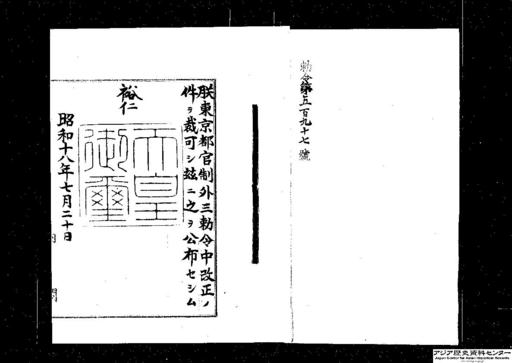 勅令第五百九十七號
朕東京都官制外三勅令中改正ノ
件ヲ裁可シ玆ニ之ヲ公布セシム
裕仁
天皇御璽
昭和十八年七月二十日
アジア歴史資料センター
Japan Center for Asian Historical Records